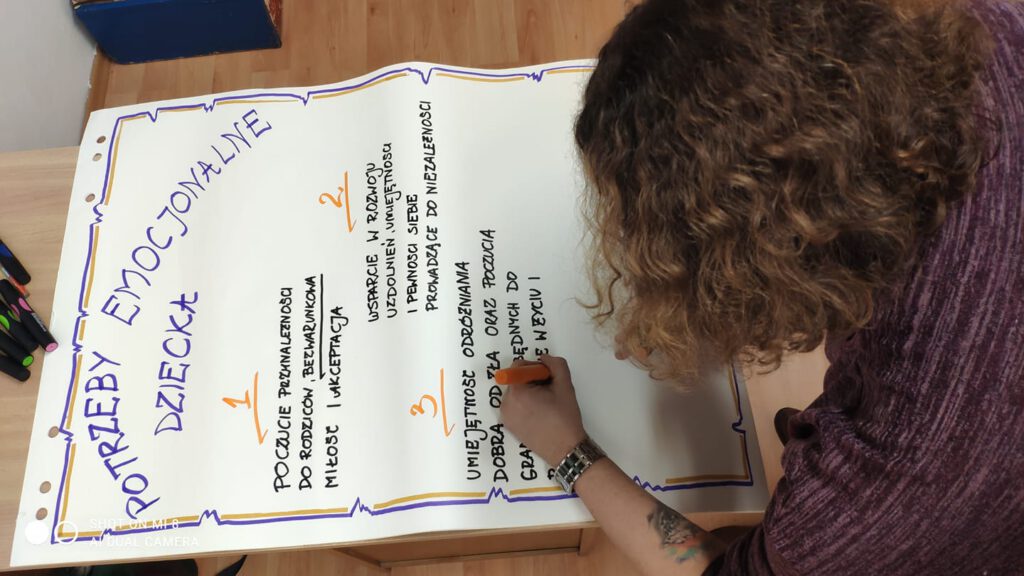 POTRZEBY EMOCJONALNE
DZIECKA
1
POCZUCIE PRZYNALEŻNOŚCI
DO RODZICÓW, BEZWARUNKOWA
MIŁOŚĆ I AKCEPTACJA
2.
WSPARCIE W ROZWOJU
UZDOLNIEŃ, UMIEJĘTNOŚCI
I PEWNOŚCI SIEBIE
PROWADZĄCE DO NIEZALEŻNOŚCI
3
UMIEJĘTNOŚĆ ODRÓŻNIANIA
DOBRA OD ZŁA ORAZ POCZUCIA
DO
W ŻYCIU I
SHOT ON MI 8
AI DUAL CAMERA